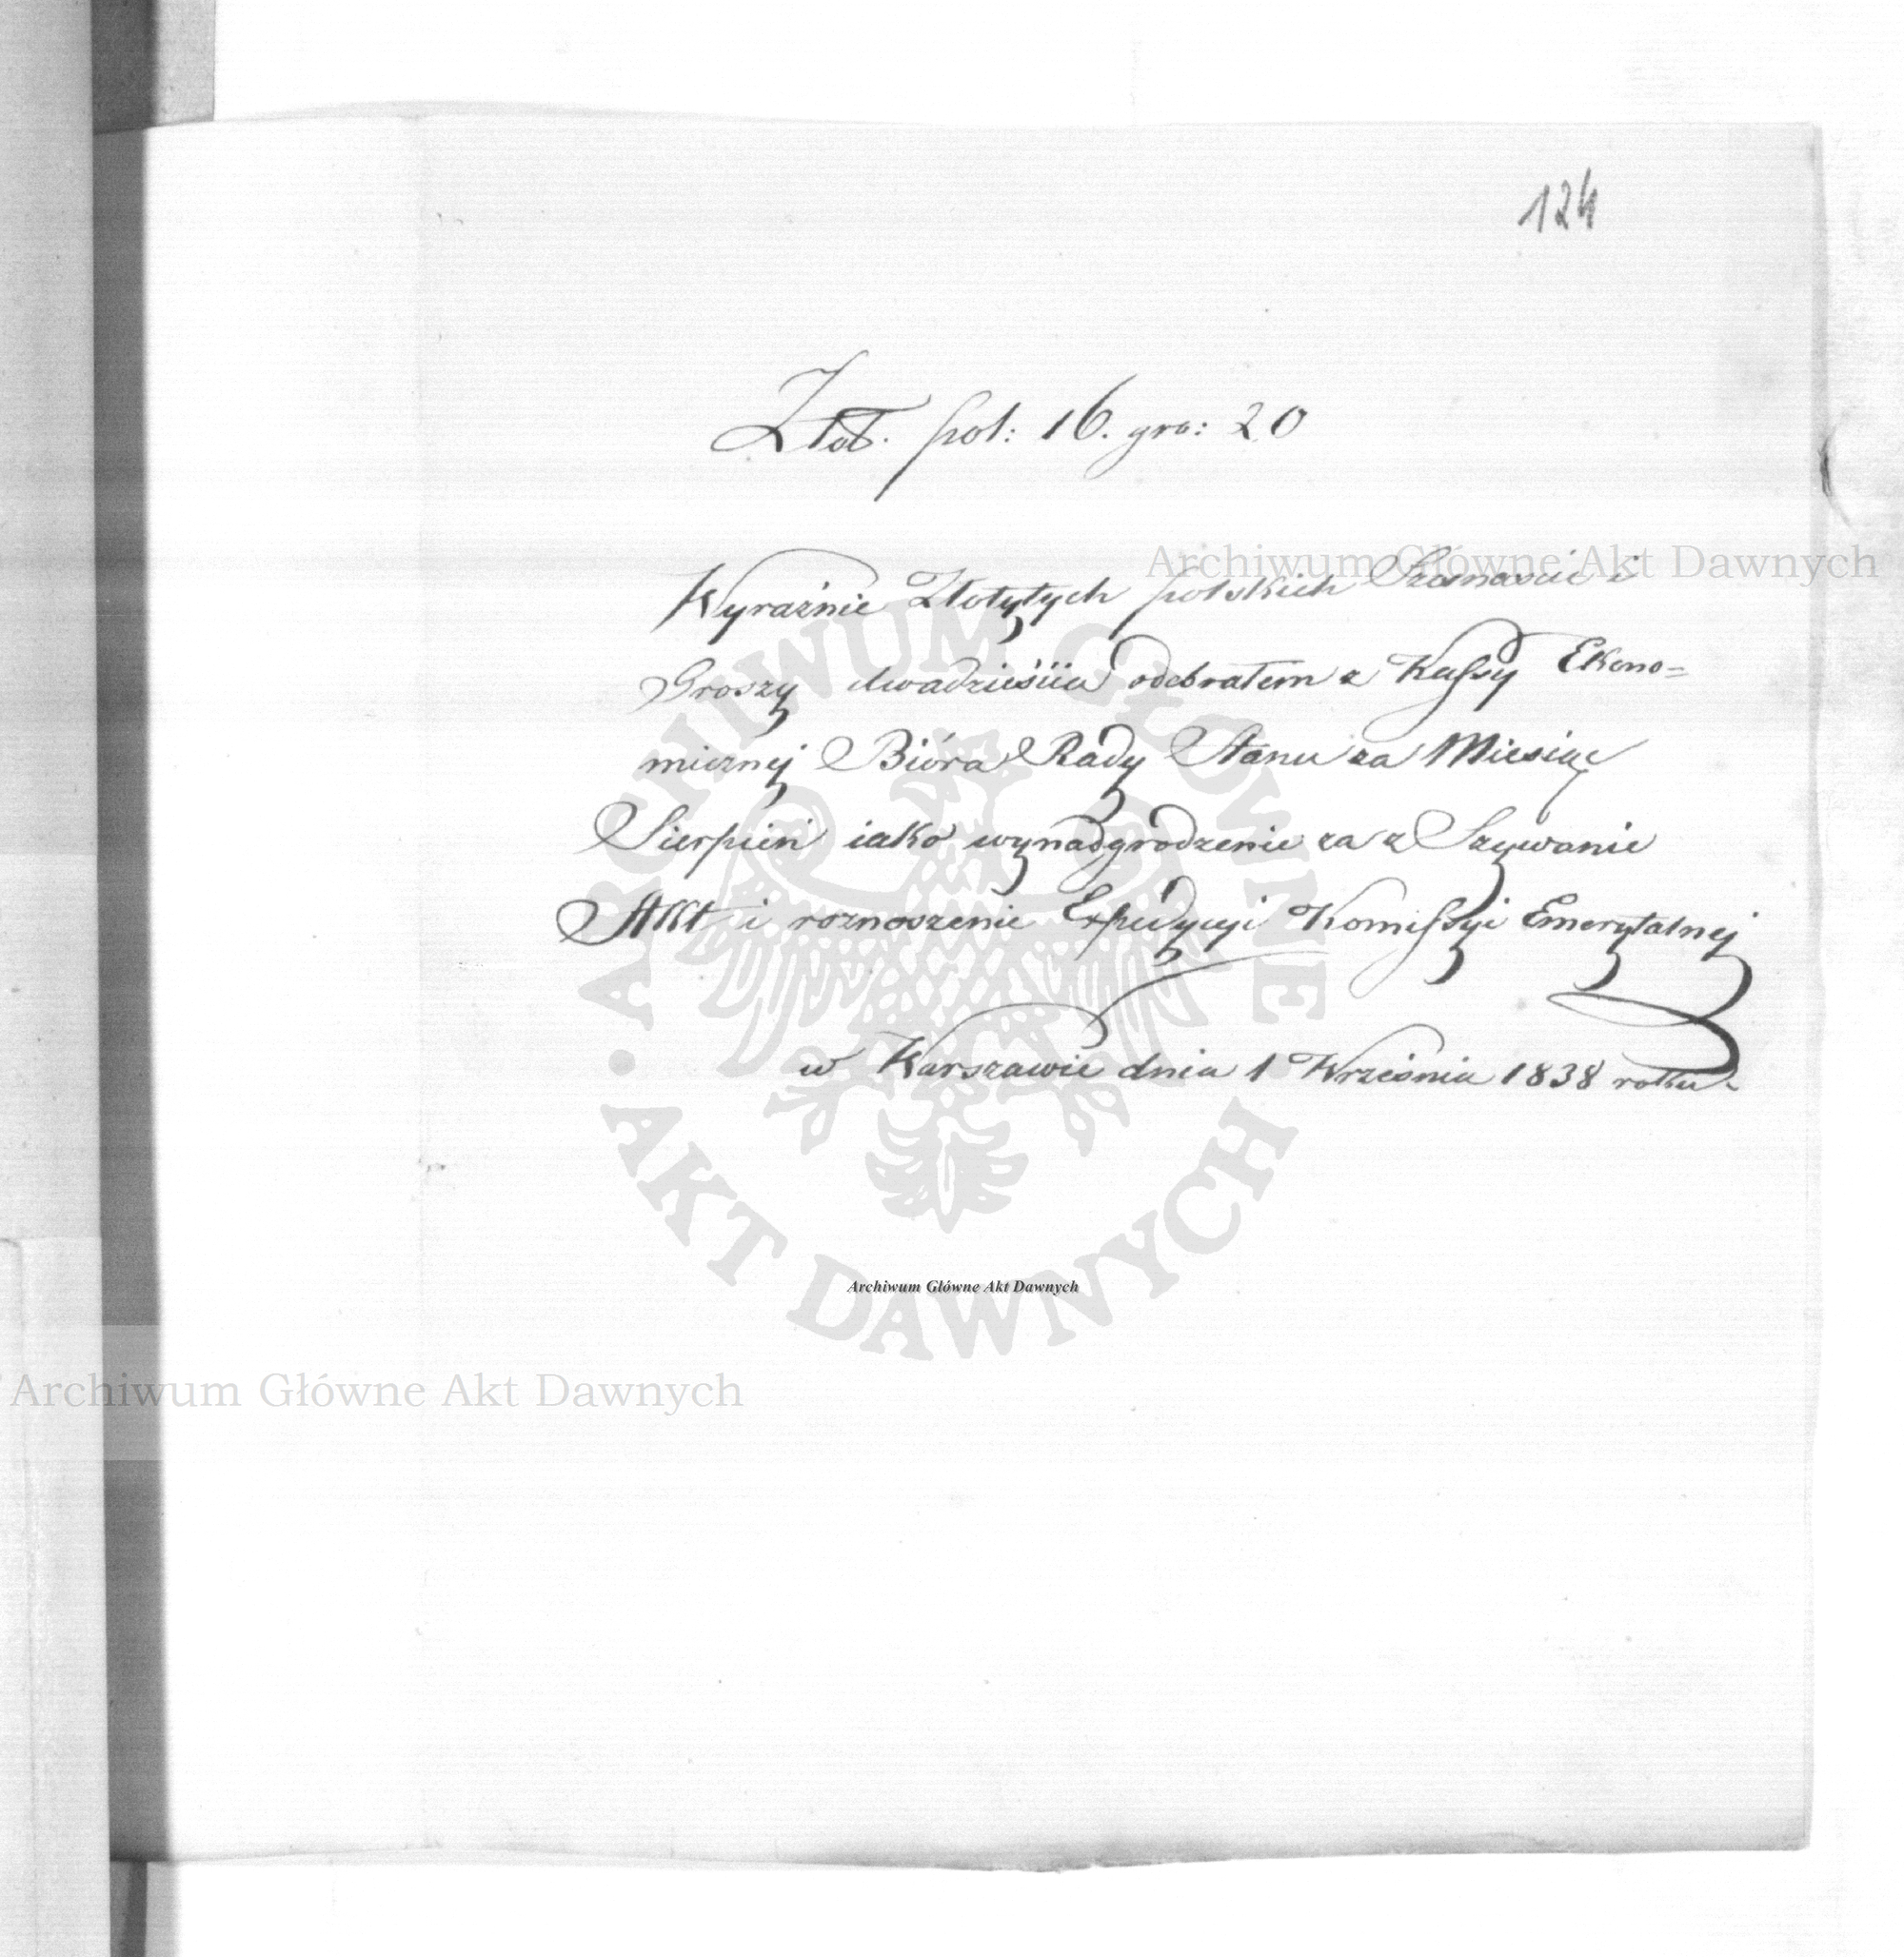 124
Złot. pol: 16. gro: 20
Archiwum Główne Akt Dawnych
Wyraźnie Złotytych polskich Szesnascie i
Groszy dwadzieścia odebrałem z Kassy Ekono=
micznej Bióra Rady Stanu za Miesiąc
Sierpień iako wynadgrodzenie za z Szywanie
Akt i roznoszenie Expedycyi Komissyi Emerytalnej
w Warszawie dnia 1 Września 1838 roku.
ARCHIWUM GŁÓWNE • AKT DAWNYCH •
Archiwum Główne Akt Dawnych
Archiwum Główne Akt Dawnych